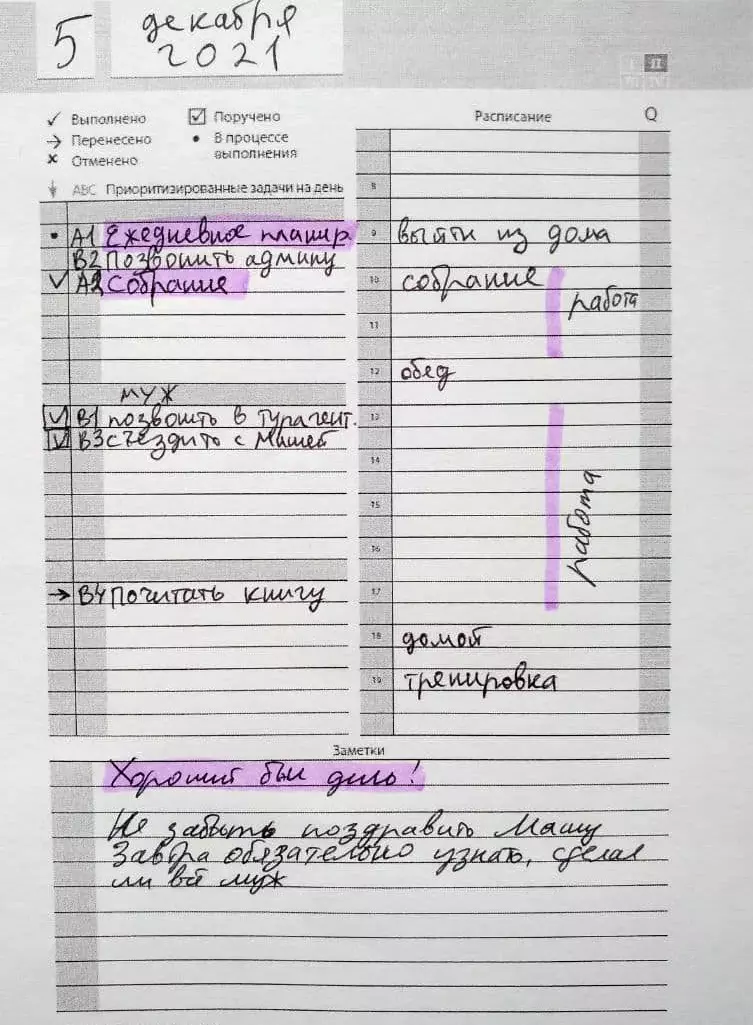 5 декабря
2021
✓ Выполнено
→ Перенесено
× Отменено
☑ Поручено
• В процессе
выполнения
ABC Приоритизированные задачи на день
• А1 Ежедневное планир.
В2 Позвонить админу
✓ А2 Собрание
муж
☑ В1 позвонить в турагент.
☑ В3 съездить с Машей
→ В4 Почитать книгу
Расписание Q
8
9 выйти из дома
10 собрание
работа
11
12 обед
13
14
15
работа
16
17
18 домой
19 тренировка
Заметки
Хороший был день!
Не забыть поздравить Машу
Завтра обязательно узнать, сделал
ли всё муж